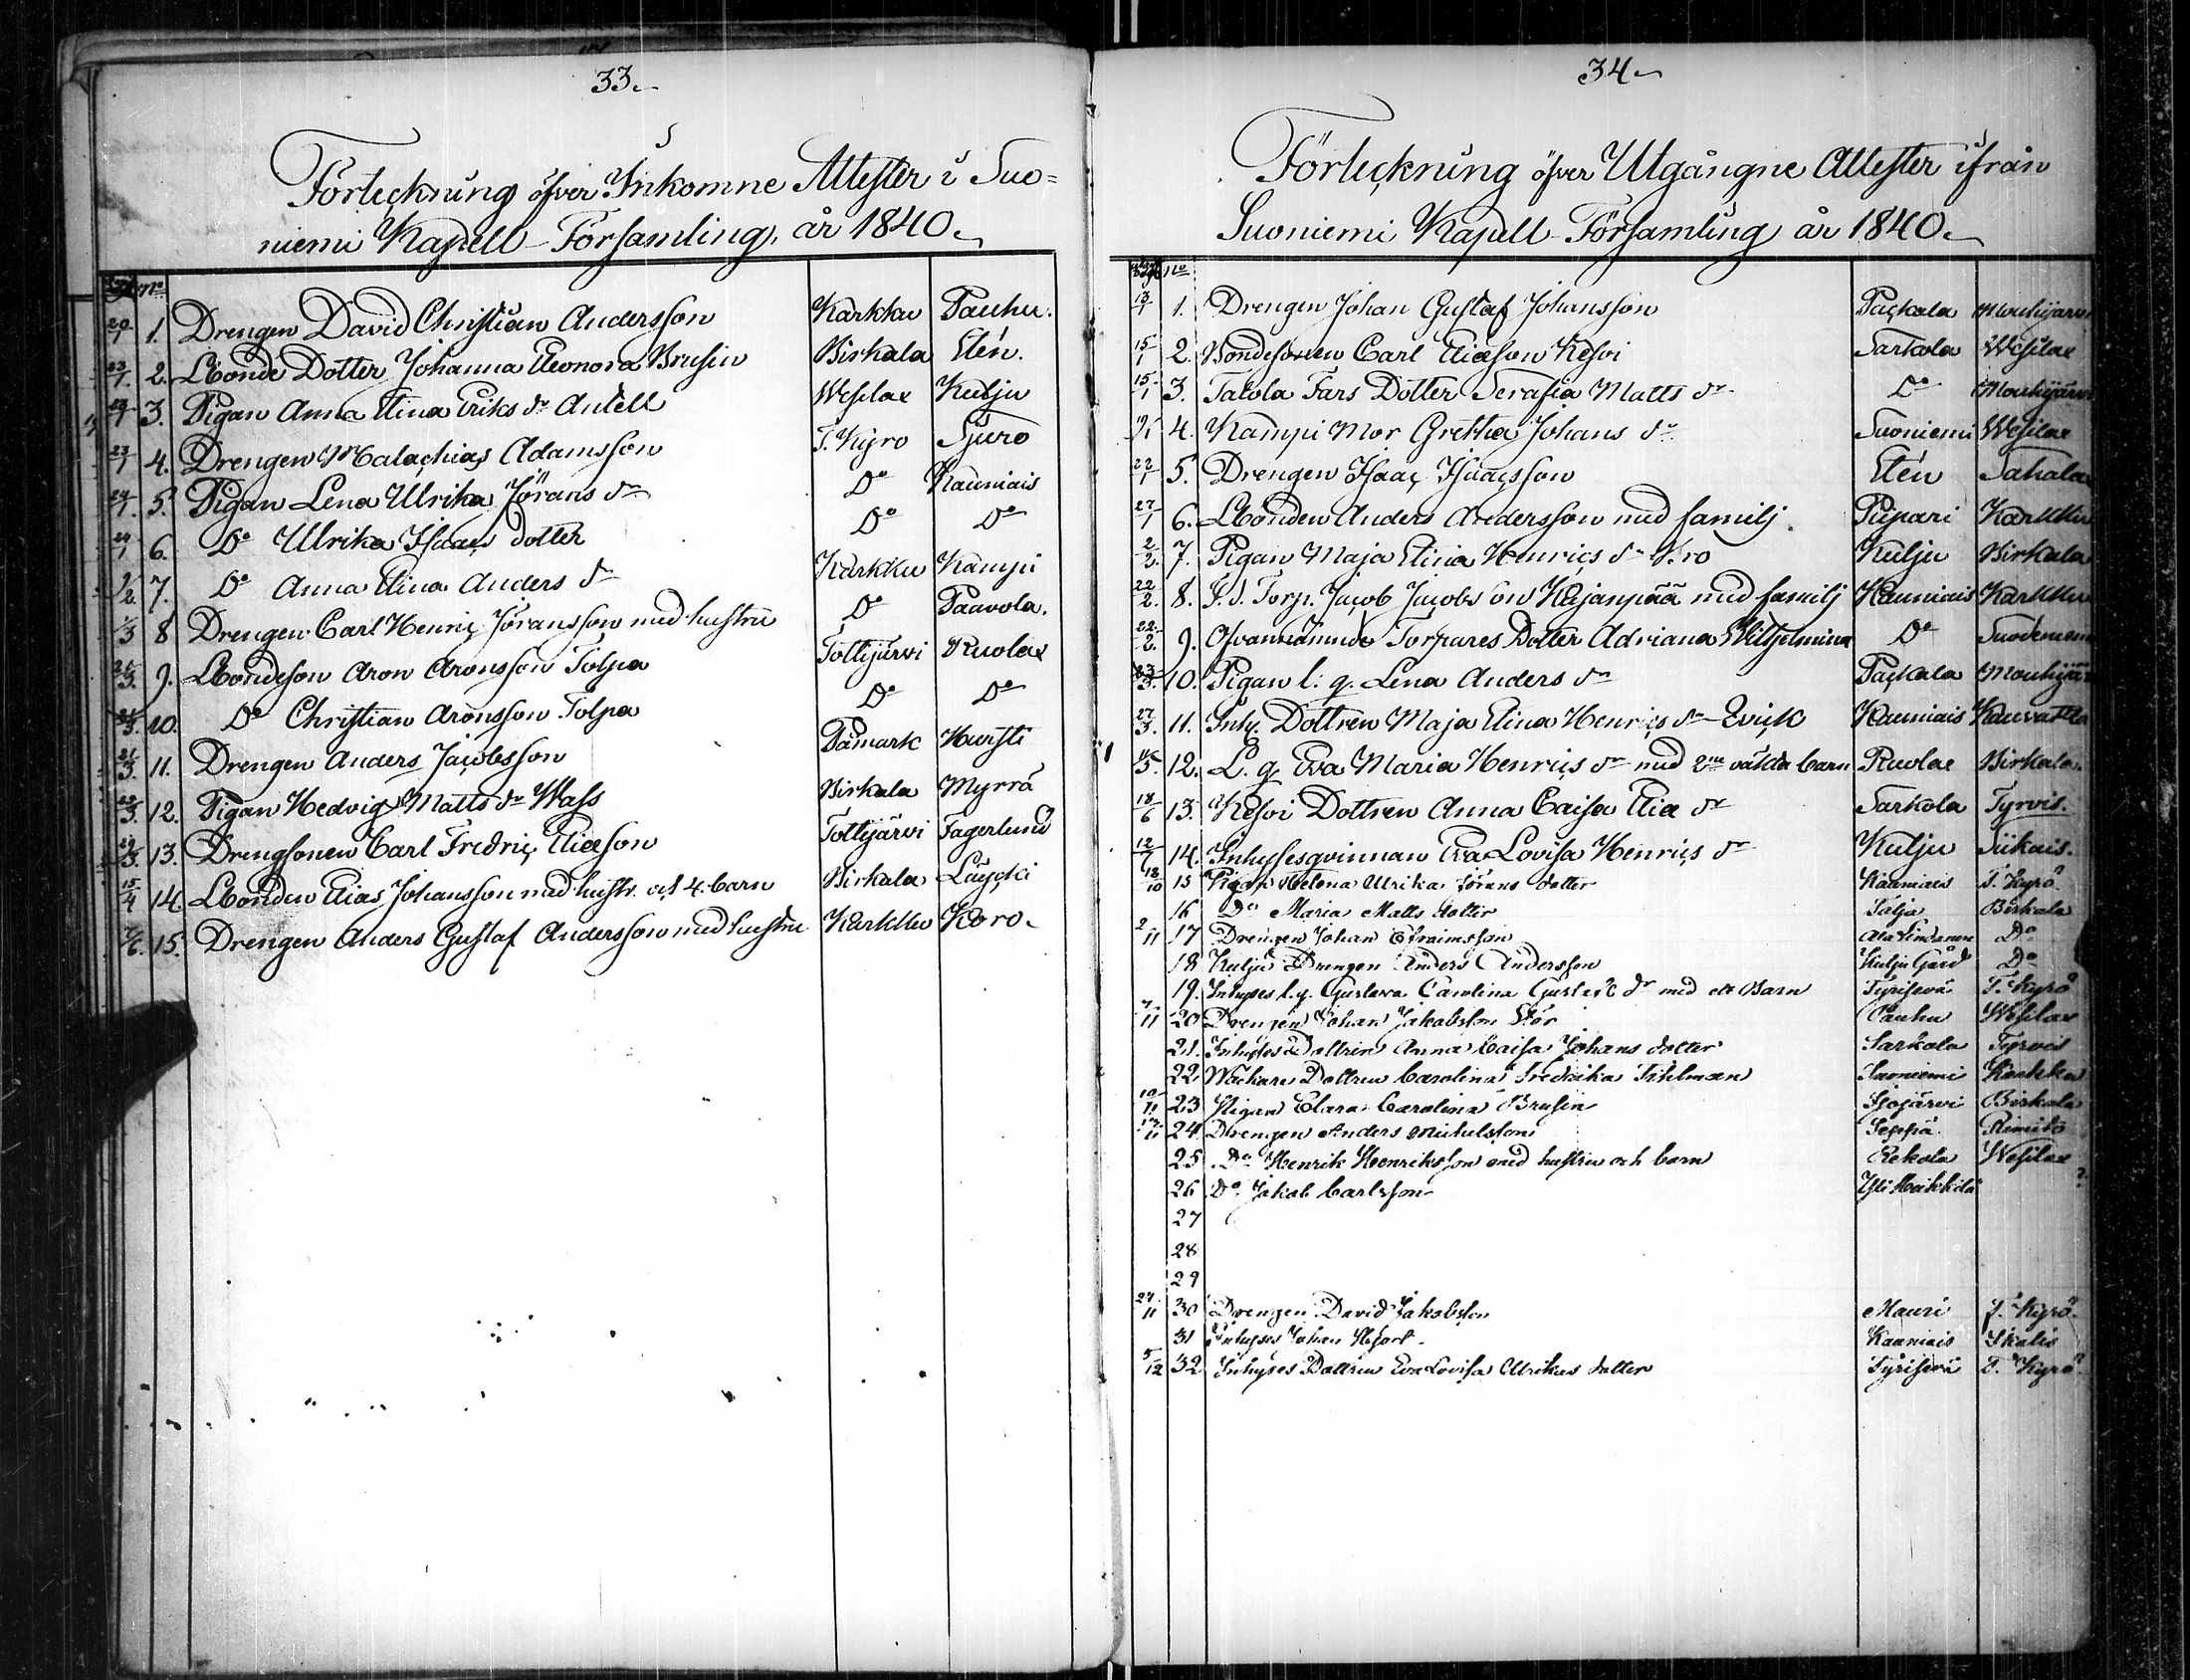 33.
Förteckning öfver Inkomne Attester i Suo=
niemi Kapell-Församling, år 1840.
No
20/1 1. Drengen David Christian Andersson Karkku Pauhu.
23/1 2. Bonde Dotter Johanna Eleonora Brusin Birkala Elén.
23/1 3. Pigan Anna Elina Eriks dr Antell Wesilax Kulju
23/1 4. Drengen Malachias Adamsson T. Kyro Sjuro
24/1 5. Pigan Lena Ulrika Jörans dr Do Kauniais
24/1 6. Do Ulrika Isaacs dotter Do Do
1/2 7. Do Anna Elina Anders dr Karkku Kampi
1/3 8 Drengen Carl Henric Jöransson med hustru Do Paavola.
21/3 9. Bondeson Aron Aronsson Tolpa Tottijärvi Ruolax
21/3 10. Do Christian Aronsson Tolpa Do Do
21/3 11. Drengen Anders Jacobsson Påmark Hursti
22/3 12. Pigan Hedvig Matts dr Wass Birkala Myrrä
29/3 13. Drengsonen Carl Fredric Eliæson Tottijärvi Fagerlund
15/4 14. Bonden Elias Johansson med hustr. och 4. barn Birkala
7/6 15. Drengen Anders Gustaf Andersson med hustru Karkku Koro.
34
Förteckning öfver Utgångne Attester ifrån
Suoniemi Kapell-Församling år 1840.
No
13/1 1. Drengen Johan Gustaf Johansson Packala Mouhijärvi
15/1 2. Bondesonen Carl Eliæson Kesvi Sarkola Wesilax
15/1 3. Talola Fars Dotter Serafia Matts dr Do Mouhijärvi
4. Kampi Mor Gretha Johans dr Suoniemi Wesilax
22/1 5. Drengen Isaac Isaacsson Elén Sahala
27/1 6. Bonden Anders Andersson med familj. Piipari Karkku
2/2 7. Pigan Maja Elina Henrics dr Kulju Birkala
22/2. 8. F.d. Torp. Jacob Jacobsson Kajanpää med familj Kauniais Karkku
22/2. 9. Ofvannämnde Torpares Dotter Adriana Wilhelmina Do Suodeniemi
23/3. 10. Pigan l: q. Lena Anders dr Packala Mouhijär
27/3. 11. Inh. Dottren Maja Elina Henrics dr Kauniais Kauvatsa
12. L. q. Eva Maria Henrics dr med 2ne oäkta barn Ruolax Birkala.
18/6 13. Kesvi Dottren Anna Caisa Eliæ dr Sarkola Tyrvis.
12/7 14. Inhysesqvinnan Eva Lovisa Henrics dr Kulju Siikais.
18/10 15 Pigan Helena Ulrika Jörans dotter Kauniais T. Kyrö
16 Do Maria Matts dotter Salja Birkala
2/11 17 Drengen Johan Efraimsson Do
18 Kulju Drengen Anders Andersson Kulju Gård Do
19. Inhyses l.q. Gustava Carolina Gustafs dr med ett Barn T. Kyrö
7/11 20 Drengen Johan Jakobsson Stör Pauhu Wesilax
21. Inhyses Dottren Anna Caisa Johans dotter Sarkola Tyrvis
22 Dottren Carolina Fredrika Suoniemi Karkku
10/11 23 Pigan Clara Carolina Brusin Birkala
24 Drengen Anders Michelsson Seppä
25 Do Henrik Henriksson med hustru och barn Rekola Wesilax
26 Do Jakob Carlsson Yli Heikkilä ?
27
28
29
24/11 30 Drengen David Jakobsson Mauri T. Kyrö.
31 Inhyses Johan Kauniais Ikalis
5/12 32 Inhyses Dottren Eva Lovisa Ulrikas dotter T. Kyrö